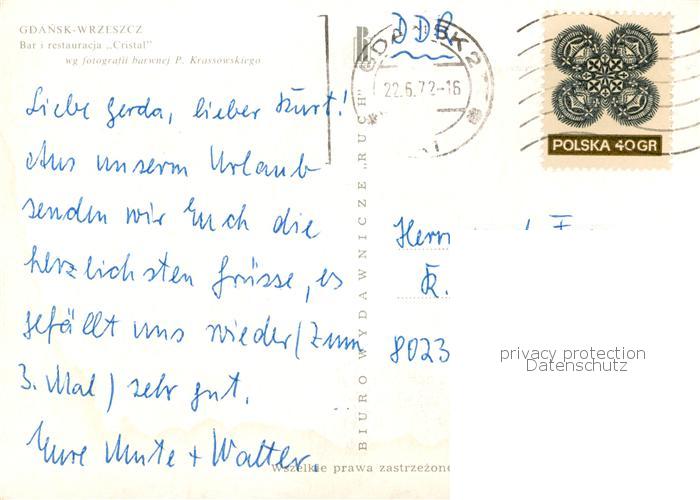 GDAŃSK-WRZESZCZ
Bar i restauracja „Cristal”
wg fotografii barwnej P. Krassowskiego
DDR
GDAŃSK 2
22.6.72-16
POLSKA 40 GR
Liebe Gerda, lieber Kurt!
Aus unserm Urlaub
senden wir Euch die
herzlichsten Grüsse, es
gefällt uns wieder (zum
3. Mal) sehr gut.
Eure Mute + Walter.
BIURO WYDAWNICZE „RUCH”
Herrn
K.
8023
privacy protection
Datenschutz
Wszelkie prawa zastrzeżone